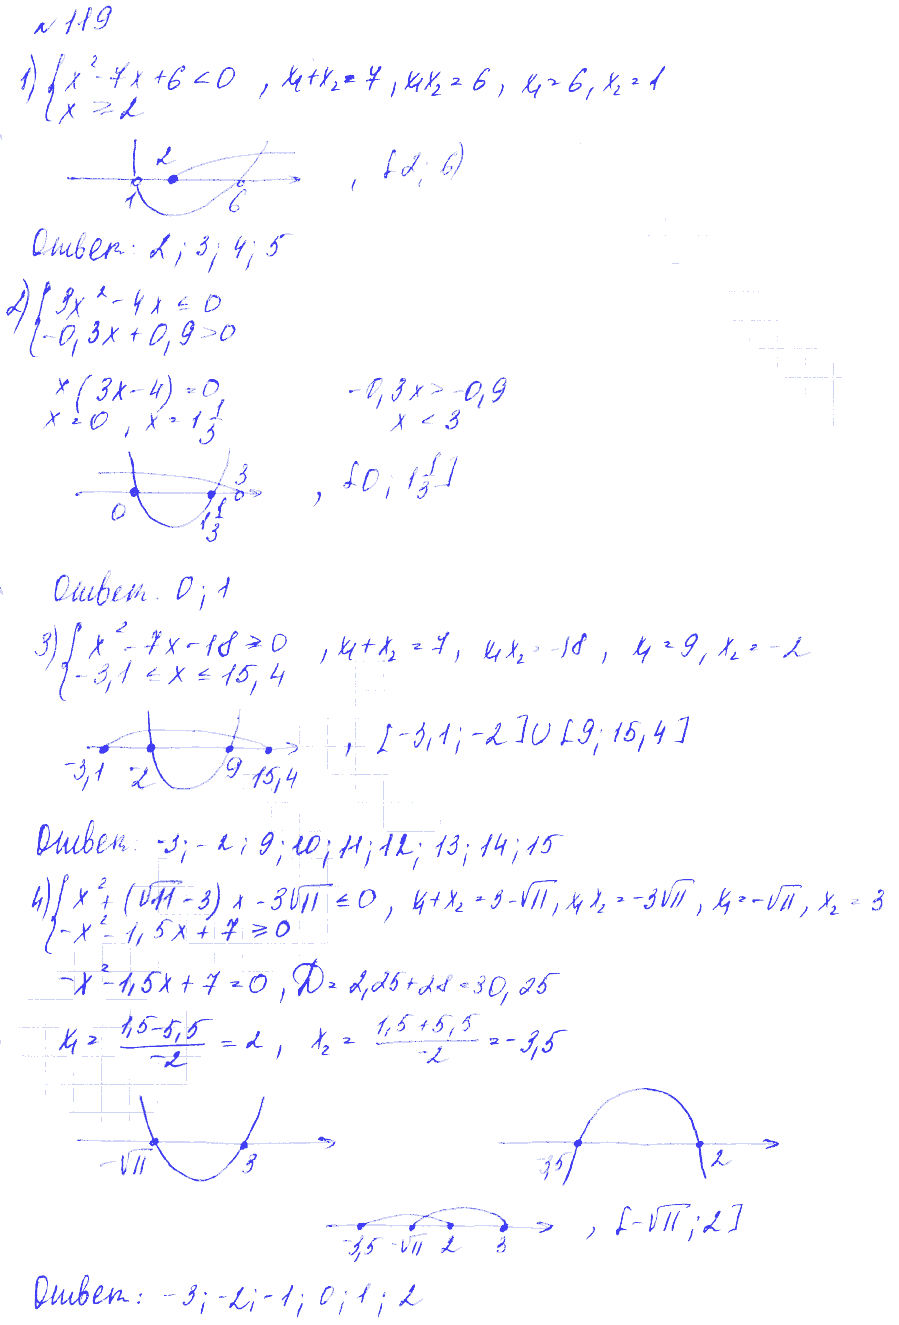 №119
1) { x² - 7x + 6 < 0 , x₁+x₂ = 7 , x₁x₂ = 6 , x₁ = 6 , x₂ = 1
x ≥ 2
2
1 6 , [2; 6)
Ответ: 2; 3; 4; 5
2) { 3x² - 4x ≤ 0
-0,3x + 0,9 > 0
x(3x-4) = 0, -0,3x > -0,9
x = 0 , x = 1 1/3 x < 3
3
0 1 1/3 , [0; 1 1/3]
Ответ. 0; 1
3) { x² - 7x - 18 ≥ 0 , x₁+x₂ = 7 , x₁x₂ = -18 , x₁ = 9 , x₂ = -2
-3,1 ≤ x ≤ 15,4
, [-3,1; -2] ∪ [9; 15,4]
-3,1 -2 9 15,4
Ответ: -3; -2; 9; 10; 11; 12; 13; 14; 15
4) { x² + (√11 - 3) x - 3√11 ≤ 0 , x₁+x₂ = 3-√11 , x₁x₂ = -3√11 , x₁ = -√11 , x₂ = 3
-x² - 1,5x + 7 ≥ 0
-x² - 1,5x + 7 = 0 , D = 2,25 + 28 = 30,25
x₁ = (1,5-5,5)/-2 = 2 , x₂ = (1,5+5,5)/-2 = -3,5
-√11 3 -3,5 2
-3,5 -√11 2 3 , [-√11; 2]
Ответ: -3; -2; -1; 0; 1; 2